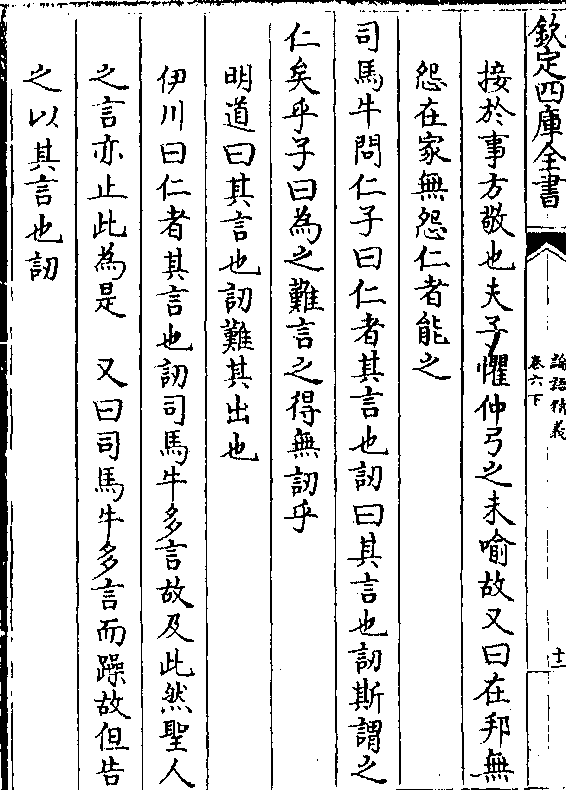 欽定四庫全書
論語精義
卷六下
十一
接於事方敬也夫子懼仲弓之未喻故又曰在邦無
怨在家無怨仁者能之
司馬牛問仁子曰仁者其言也訒曰其言也訒斯謂之
仁矣乎子曰為之難言之得無訒乎
明道曰其言也訒難其出也
伊川曰仁者其言也訒司馬牛多言故及此然聖人
之言亦止此為是　又曰司馬牛多言而躁故但告
之以其言也訒